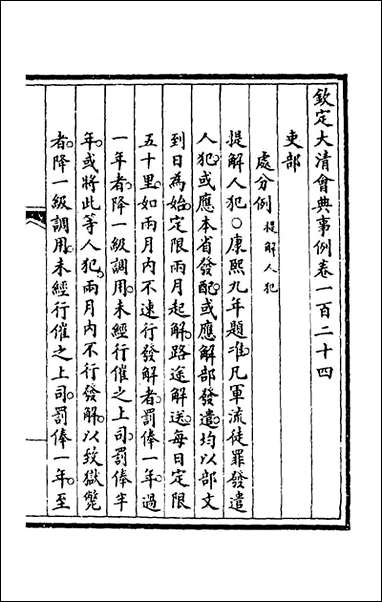 欽定大清會典事例卷一百二十四
吏部
處分例提解人犯
提解人犯○康熙九年題准凡軍流徒罪發遣
人犯或應本省發配或應解部發遣均以部文
到日為始定限兩月起解路途解送每日定限
五十里如兩月內不速行發解者罰俸一年過
一年者降一級調用未經行催之上司罰俸半
年或將此等人犯兩月內不行發解以致獄斃
者降一級調用未經行催之上司罰俸一年至